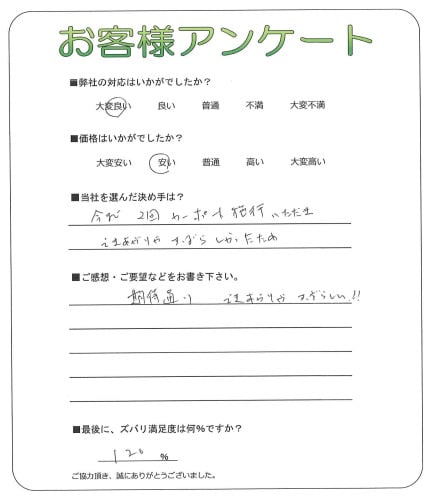 お客様アンケート
■弊社の対応はいかがでしたか?
大変良い 良い 普通 不満 大変不満
■価格はいかがでしたか?
大変安い 安い 普通 高い 大変高い
■当社を選んだ決め手は?
2回カーポート施行いただき
仕あがりがすばらしかったため
■ご感想・ご要望などをお書き下さい。
期待通り 仕あがりがすばらしい!!
■最後に、ズバリ満足度は何%ですか?
120 %
ご協力頂き、誠にありがとうございました。